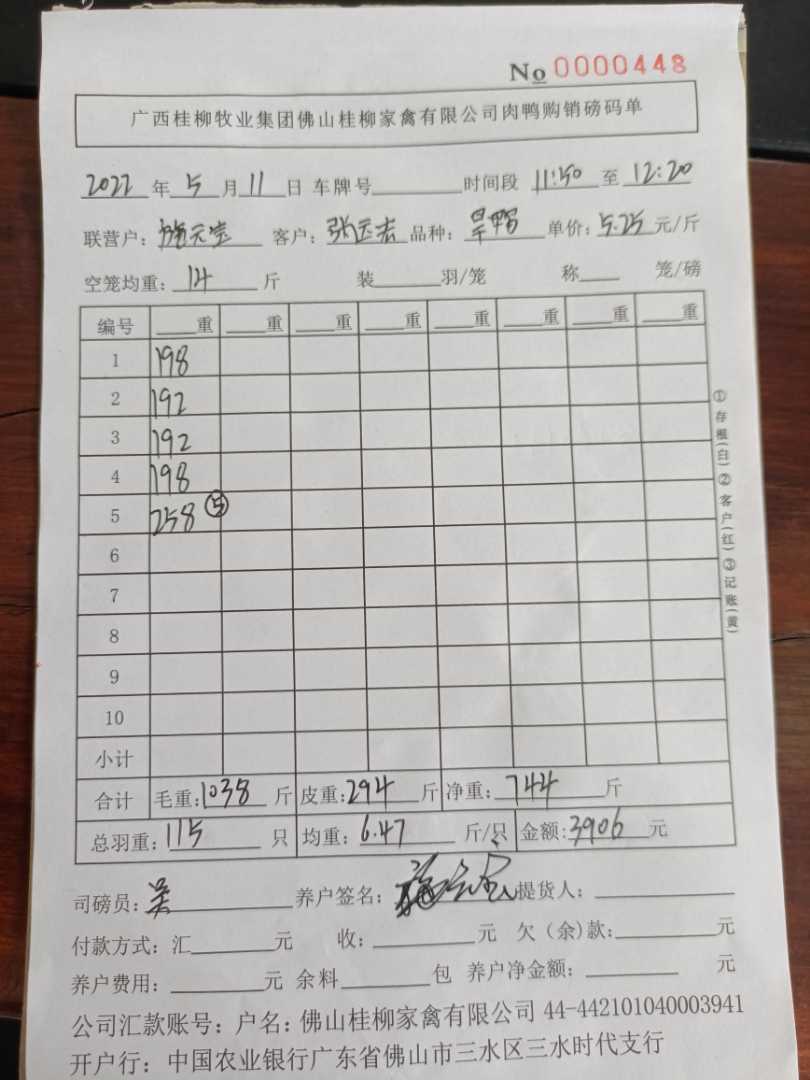 No 0000448
广西桂柳牧业集团佛山桂柳家禽有限公司肉鸭购销磅码单
2022 年 5 月 11 日 车牌号 时间段 11:50 至 12:20
联营户: 施元宝 客户: 张 品种: 旱鸭 单价: 5.25 元/斤
空笼均重: 14 斤 装 羽/笼 称 笼/磅
编号 重 重 重 重 重 重 重 重
1 198
2 192
3 192
4 198
5 258 ⑤
6
7
8
9
10
小计
合计 毛重: 1038 斤 皮重: 294 斤 净重: 744 斤
总羽重: 115 只 均重: 6.47 斤/只 金额: 3906 元
司磅员: 吴 养户签名: 提货人:
付款方式: 汇 元 收: 元 欠(余)款: 元
养户费用: 元 余料 包 养户净金额: 元
公司汇款账号: 户名: 佛山桂柳家禽有限公司 44-442101040003941
开户行: 中国农业银行广东省佛山市三水区三水时代支行
①存根(白)②客户(红)③记账(黄)